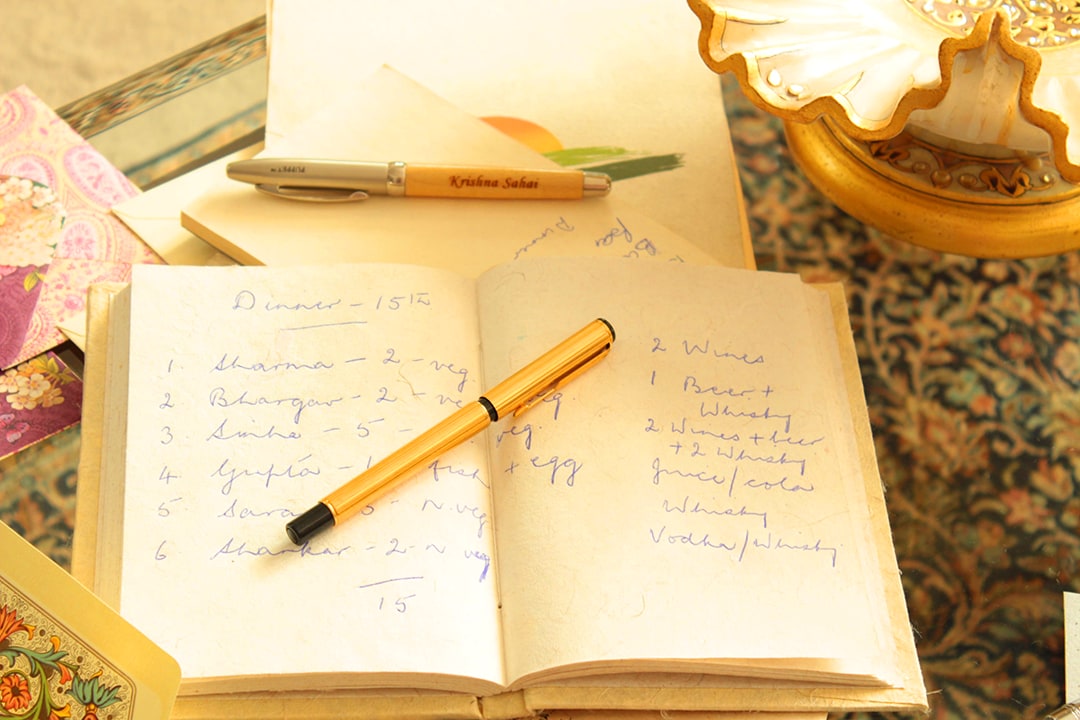 Krishna Sahai
Dinner - 15th
1 Sharma - 2 - veg 2 Wines
2 Bhargav - 2 - veg. 1 Beer +
Whisky
3 Sinha - 5 - veg. 2 Wines + beer
+ 2 Whisky
4 Gupta - fish + egg Juice/cola
5 Sara - N. veg Whisky
6 Shankar - 2 - N veg Vodka/Whisky
15